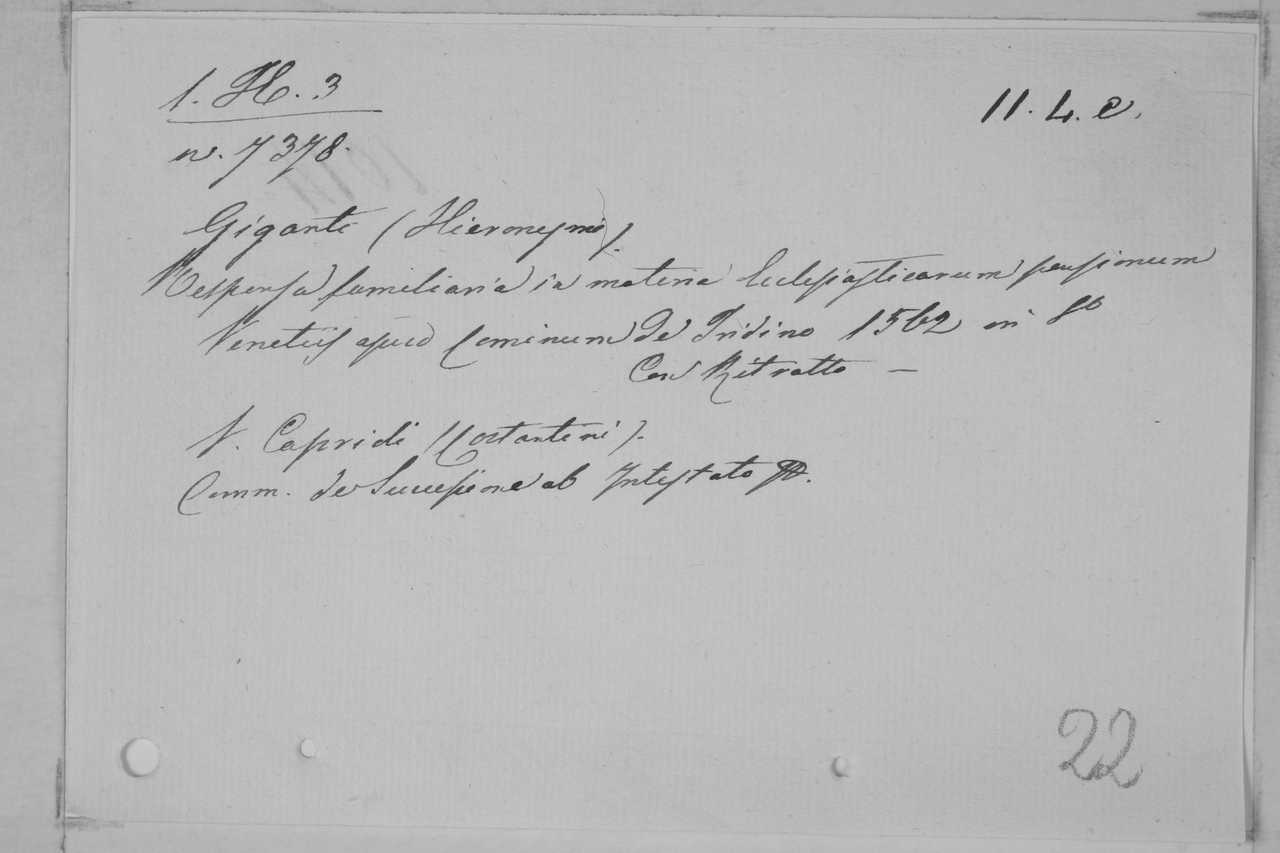 1. H. 3
11. 4. e.
n. 7378.
Giganti (Hieronymi).
Responsa familiaria in materia Ecclesiasticarum pensionum
Venetiis apud Cominum de Tridino 1562 in 8º
Con Ritratto —
V. Capridi (Costantini).
Comm. de Successione ab Intestato
22